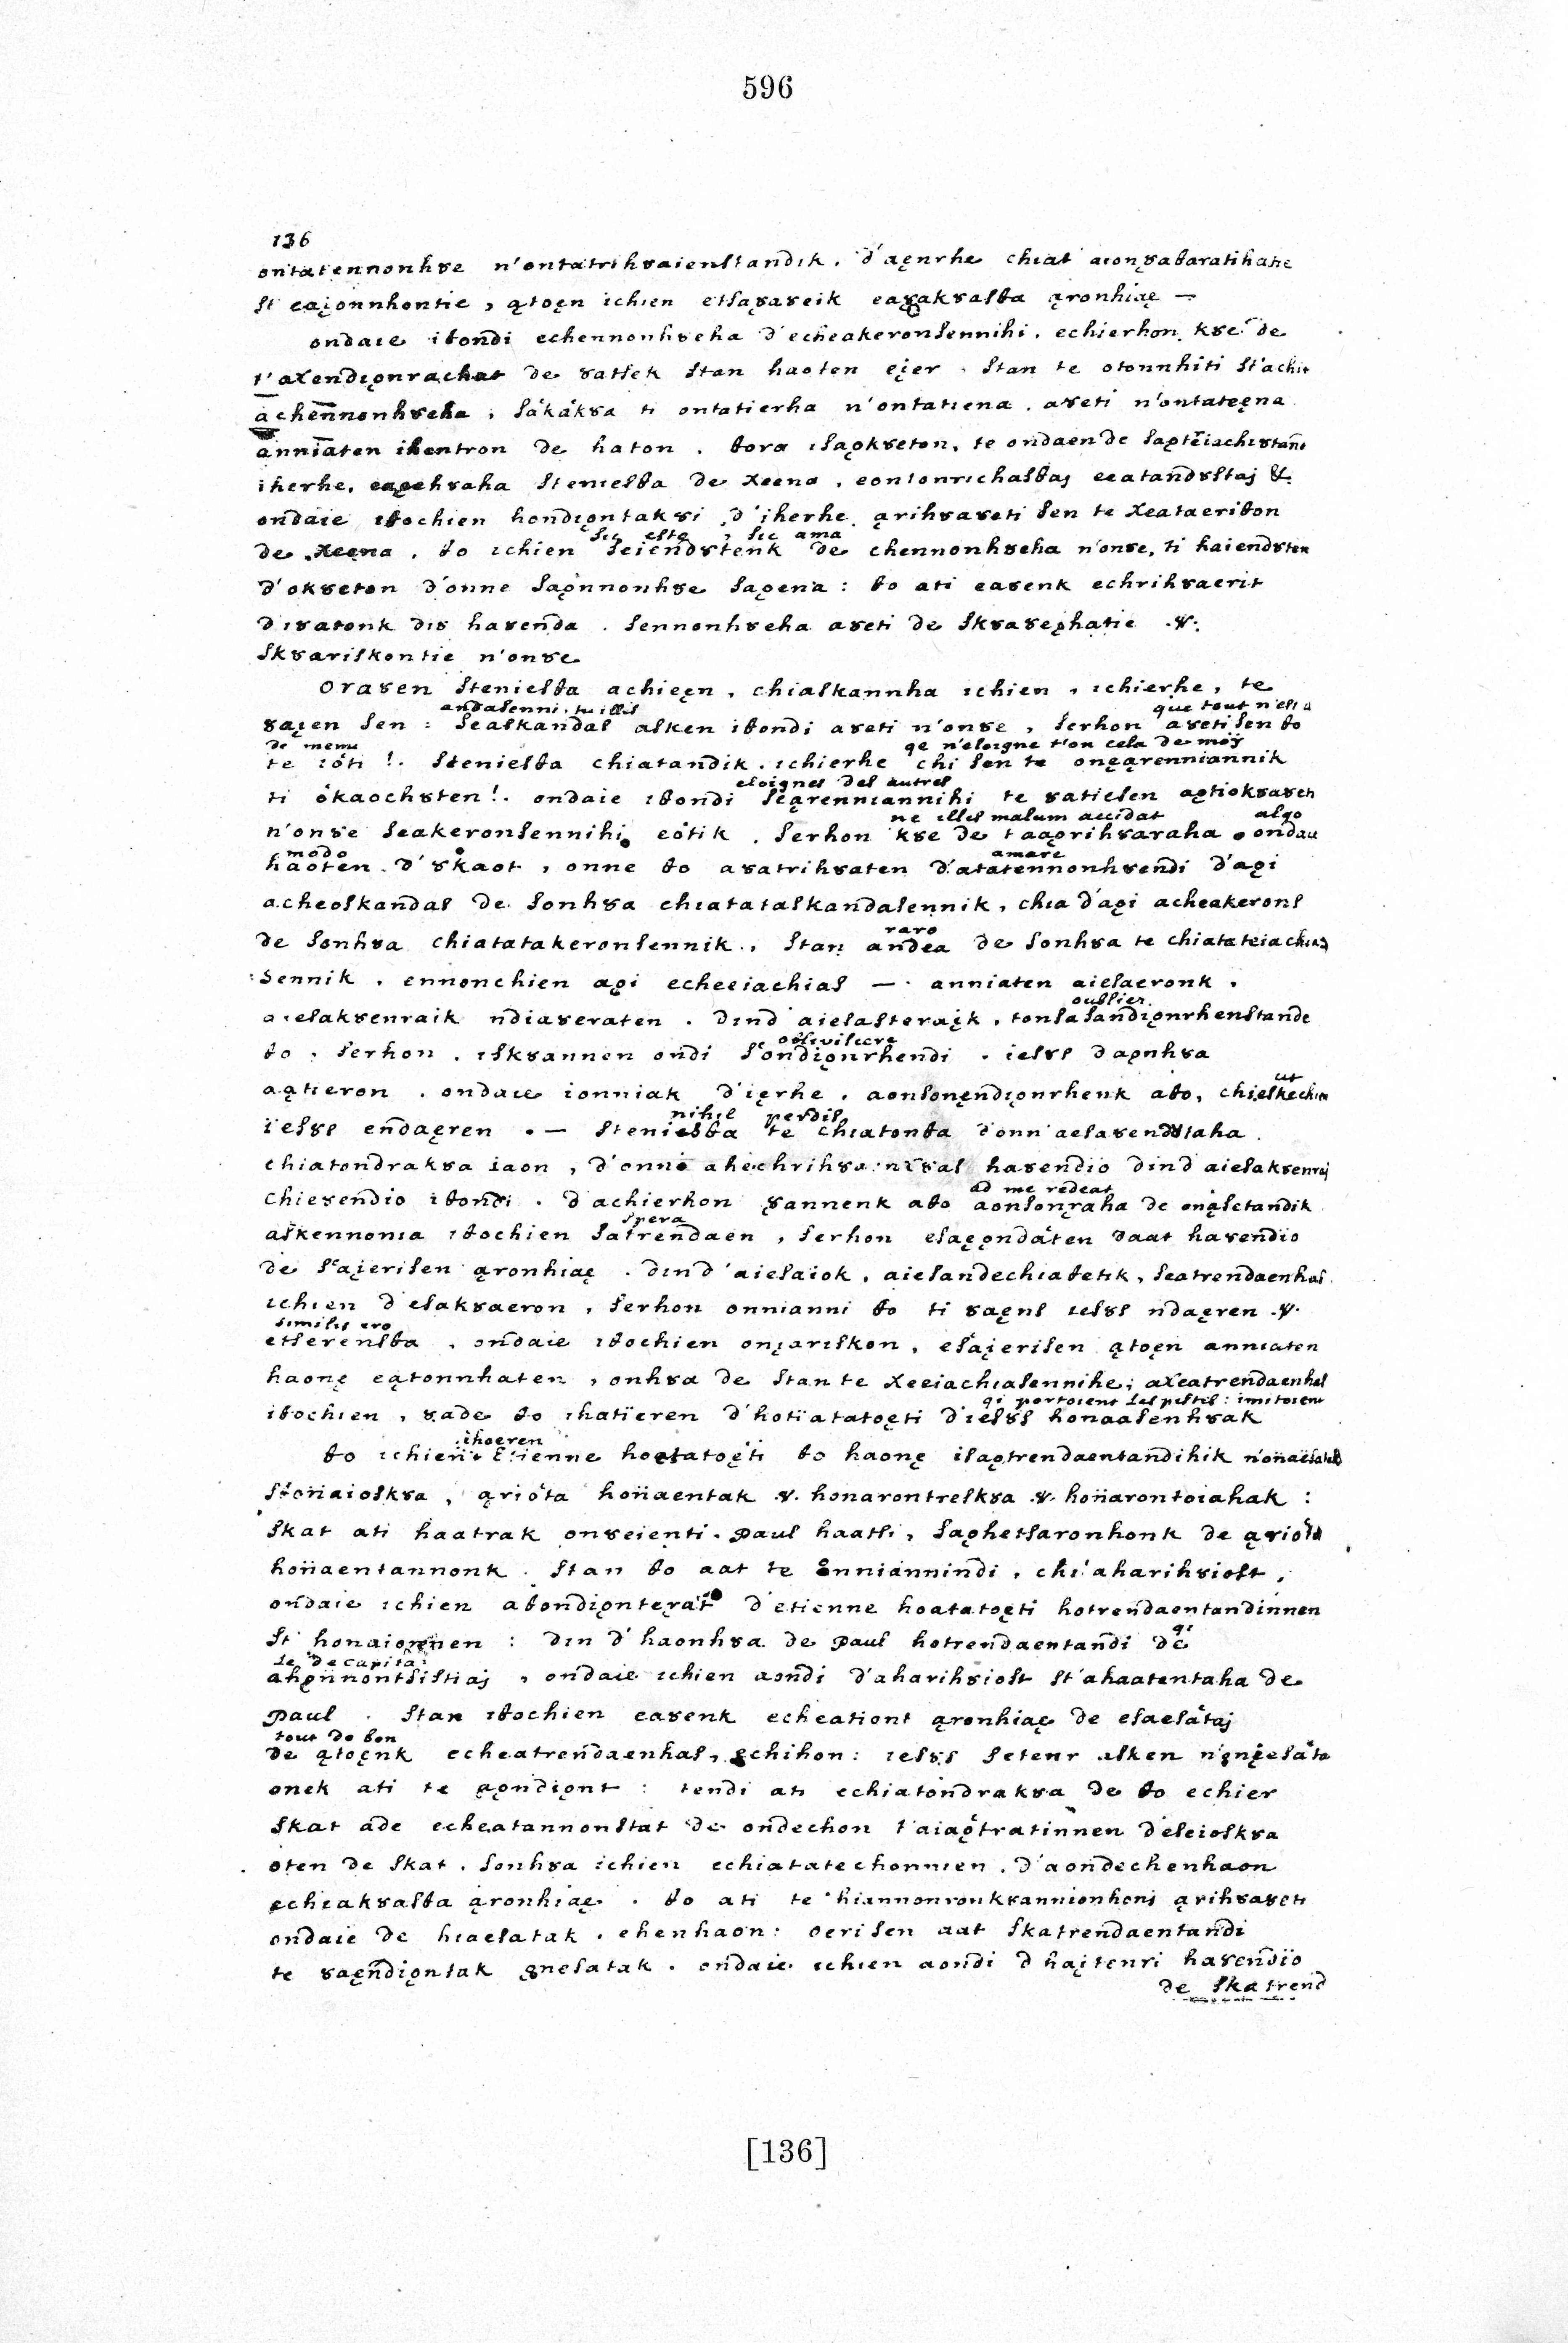 596
136
ontatennonhȣe n'ontatrihȣaienstandik. d'aęnrhe chiat aionȣaθaratihatie
st eaįonnhontie, ątoęn ichien etsaȣaȣeik eaȣakȣasθa ąronhiaę —
ondaie iθondi echennonhȣeha d'echeakeronsennihi. echierhon kȣe de
t'aχendįonrachat de ȣatsek stan haoten ejer. stan te otonnhiti st'achie
achennonhȣeha, sakakȣa ti ontatierha n'ontatiena. aȣeti n'ontateęna
anniaten ihentron de haton. θora isaǫkȣeton, te ondaen de
iherhe, steniesθa de χeena, eontonrichasθaj eeatandȣstaj &.
ondaie iθochien hondįontakȣi d'iherhe ąrihȣaȣeti sen te χeataeriθon
sic esto, sic ama
de χeęna. θo ichien seiendȣtenk de chennonhȣeha n'onȣe, ti haiendȣten
d'okȣeton d'onne saǫnnonhȣe saǫena: θo ati eaȣenk echrihȣaerit
d'iȣatonk dis haȣenda. sennonhȣeha aȣeti de skȣaȣeęhatie .ȣ.
skȣariskontie n'onȣe
oraȣen steniesθa achieęn, chiaskannha ichien, ichierhe, te
andasenni. tu illis que tout n'est il
ȣaįen sen: seaskandas asken iθondi aȣeti n'onȣe, serhon aȣeti sen θo
de meme qe n'eloigne t'on cela de moÿ
te ioti!. steniesθa chiatandik. ichierhe chi sen te onęąrenniannik
eloignes des autres
ti okaochȣten!. ondaie iθondi seąrenniannihi te ȣatiesen aǫtiokȣaȣen
ne illis malum accidat algo
n'onȣe seakeronsennihi eotik. serhon kȣe de taaǫrihȣaraha. ondaie
modo amare
haoten d'ȣkaot, onne θo aȣatrihȣaten d'atatennonhȣendi d'aǫi
acheoskandas de sonhȣa chiatataskandasennik, chia d'aǫi acheakerons
raro
de sonhȣa chiatatakeronsennik., stan andea de sonhȣa te chiatateiachia
sennik. ennonchien aǫi echeeiachias —. anniaten aiesaeronk.
oublier.
aiesakȣenraik ndiaȣeraten. dind aiesasteraįk, tonsasandįonrhenstande
oblivisere
θo. serhon. iskȣannen ondi s'ondįonrhendi. iesȣs daǫnhȣa
ut
aątieron. ondaie ionniak d'ięrhe. aonsonęndįonrhenk aθo, chieskechien
nihil perdis
iesȣs endaęren. — steniesθa te chiatonθa d'onn'aesaȣendȣtaha.
chiatondrakȣa iaon, d'onne haȣendio dind aiesakȣenraj
ad me redeat
chieȣendio iθondi. d'achierhon ȣannenk aθo aonsonęraha de onąsetandik
spera
askennonia iθochien satrendaen, serhon esaęǫndaten daat haȣendio
de s'aįerisen ąronhiaę. dind'aiesaiok, aiesandechiaθetik, seatrendaenhas
ichien d'esakȣaeron, serhon onnianni θo ti ȣaęns iesȣs ndaęren .ȣ.
similis ero
etserensθa. ondaie iθochien onįariskon, esaįerisen ątoęn anniaten
haonę eątonnhaten, onhȣa de stan te χeeiachiasennihe; aχeatrendaenhas
qi portoient les pestes: imitoient
iθochien, ȣade θo ihatieren d'hotiatatoęti d'iesȣs honaasenhȣak
ihoeren
θo ichien Etienne hoatatoęti θo haonę isaǫtrendaentandihik
st'onaioskȣa, ąriota honaentak .ȣ. honarontreskȣa .ȣ. honarontoiahak:
skat ati haatrak onȣeienti. paul haatsi, saǫhetsaronhonk de ąriota
honaentannonk. stan θo aat te enniannindi, chi'aharihȣiost,
ondaie ichien aθondįonterat d'etienne hoatatoęti hotrendaentandinnen
qi
st honaioȣnen: din d'haonhȣa de paul hotrendaentandi de
le decapita:
ahǫnnontsistiaj, ondaie ichien aondi d'aharihȣiost st'ahaatentaha de
paul. stan iθochien eaȣenk echeationt ąronhiaę de esaesataj
tout de bon
de ątoęnk echeatrendaenhas, echihon: iesȣs seteur asken
onek ati te aǫndįont: tendi ati echiatondrakȣa de θo echier
skat ade echeatannonstat de ondechon t'aiaǫtratinnen d'eseioskȣa
oten de skat. sonhȣa ichien echiatatechonnien. d'aondechenhaon
echeakȣasθa ąronhiaę. θo ati te ąrihȣaȣeti
ondaie de hiaesatak. ehenhaon: oerisen aat skatrendaentandi
te ȣaęndįontak ǫnesatak. ondaie ichien aondi d haįtenri haȣendio
de skatrend
[136]